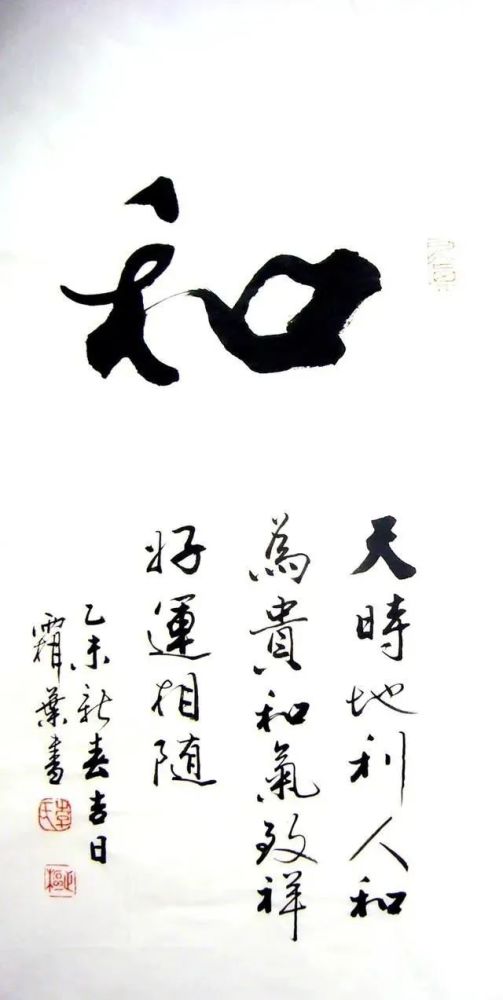 和
天時地利人和
為貴和氣致祥
好運相随
乙未新春吉日
霜葉書